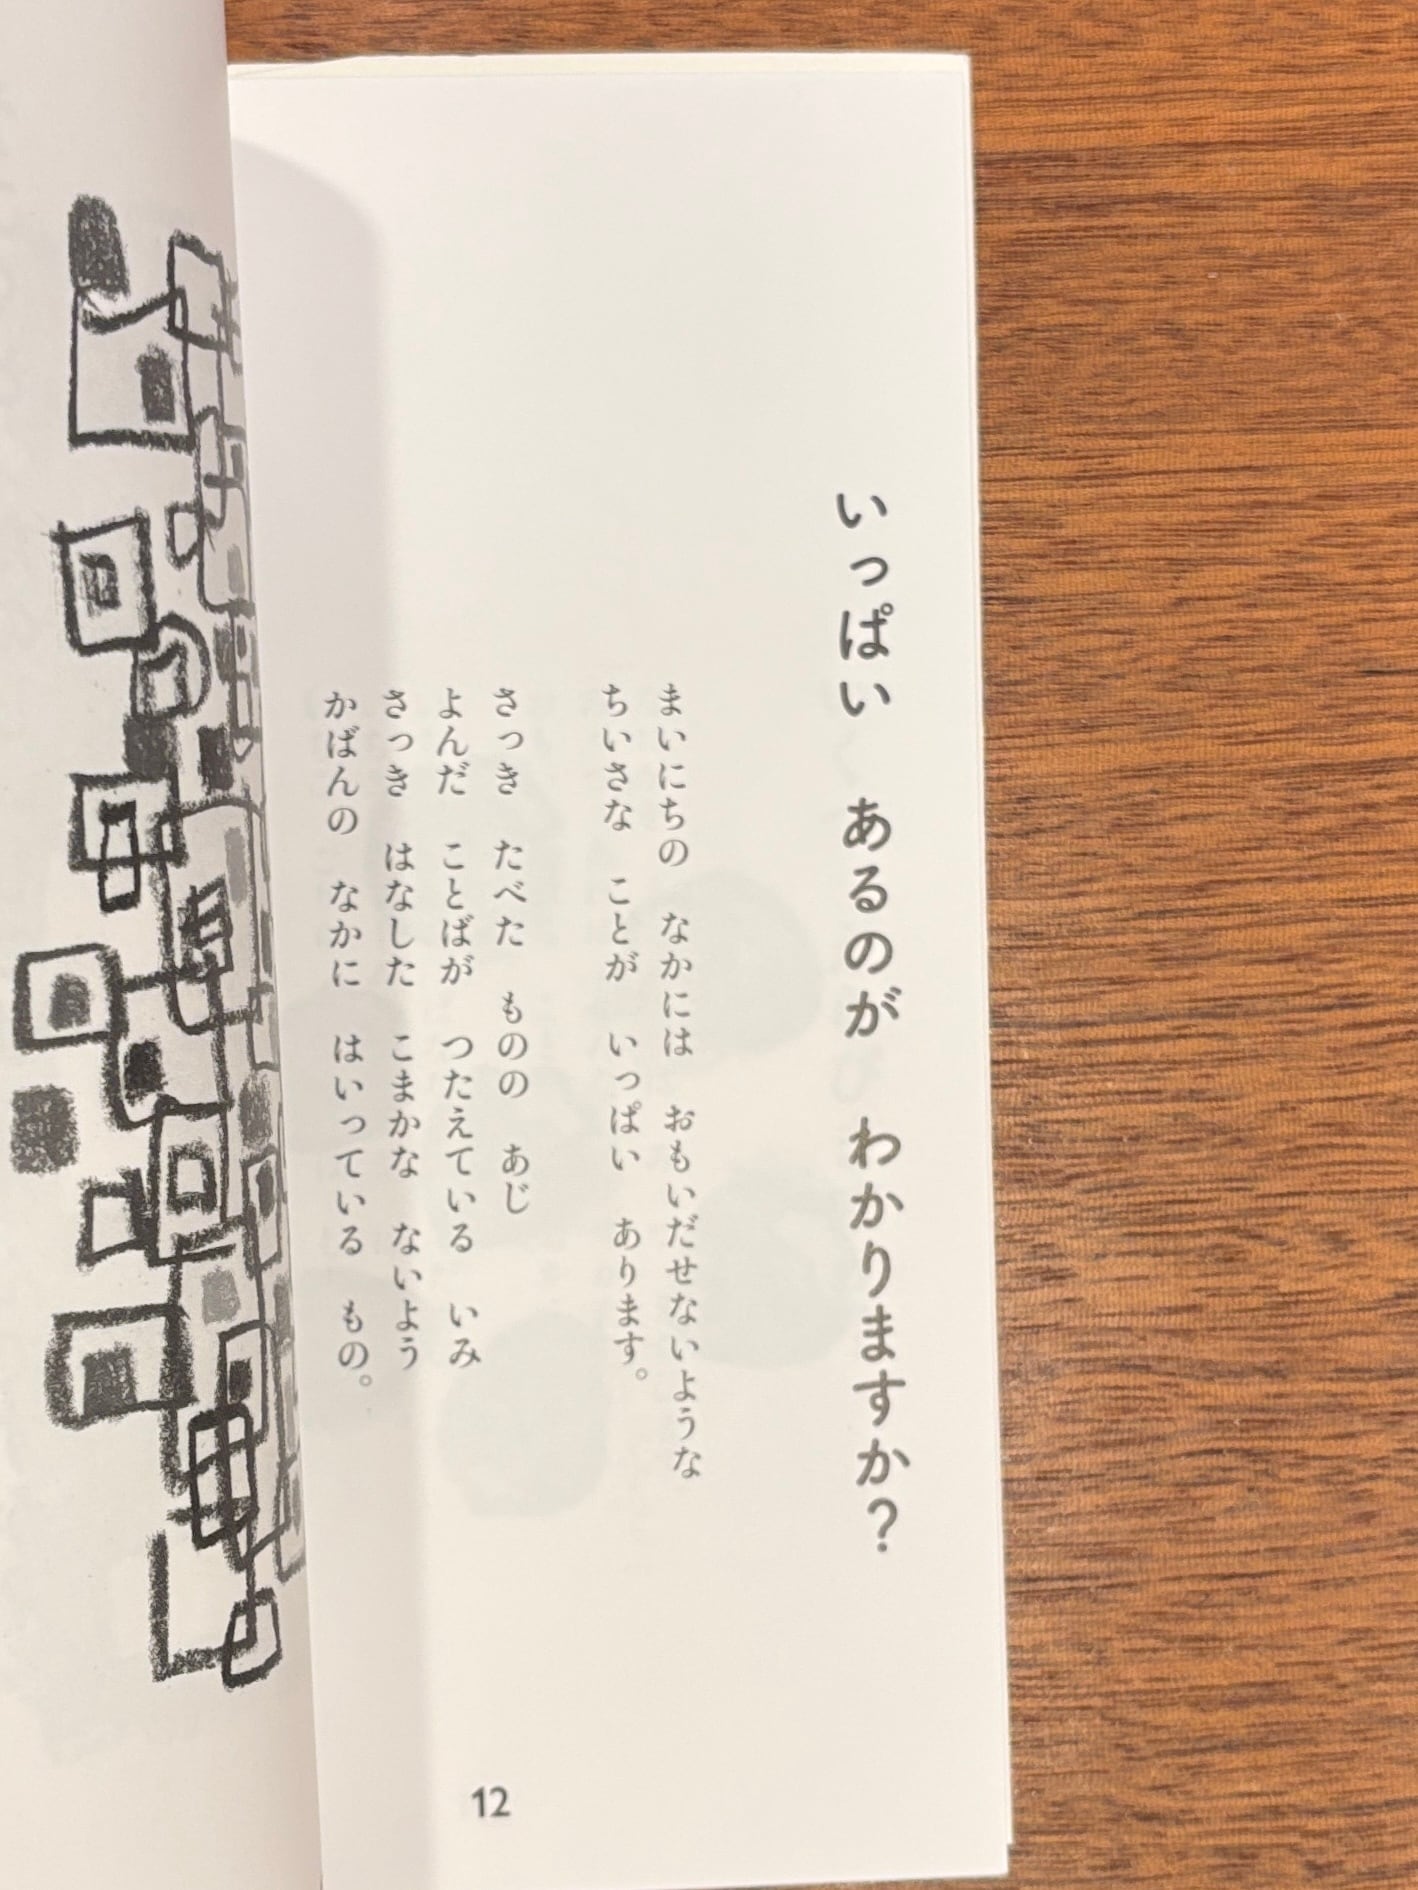 いっぱい　あるのが　わかりますか？
まいにちの　なかには　おもいだせないような
ちいさな　ことが　いっぱい　あります。
さっき　たべた　ものの　あじ
よんだ　ことばが　つたえている　いみ
さっき　はなした　こまかな　ないよう
かばんの　なかに　はいっている　もの。
12